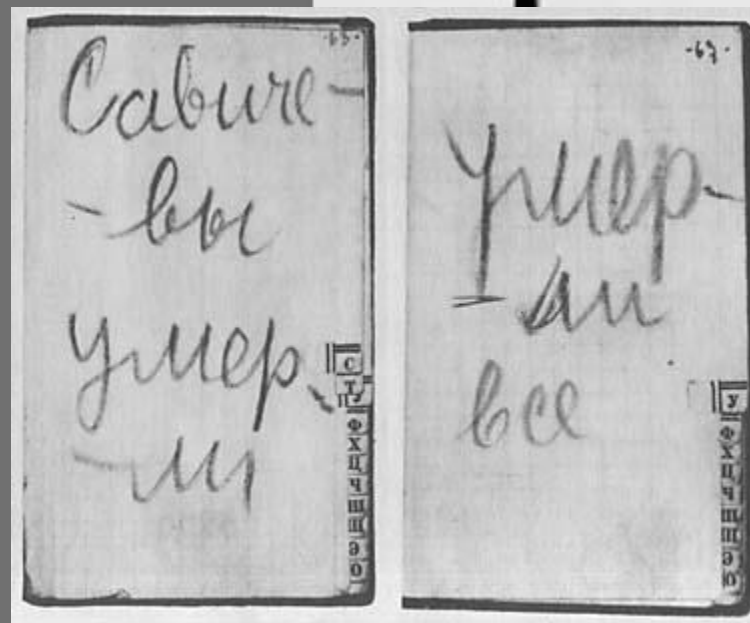 ·63·
Савиче-
-вы
умер-
-ли
С
Т
У
Ф
Х
Ц
Ч
Ш
Щ
Э
·67·
умер-
-ли
все
У
Ф
Х
Ц
Ч
Ш
Щ
Э